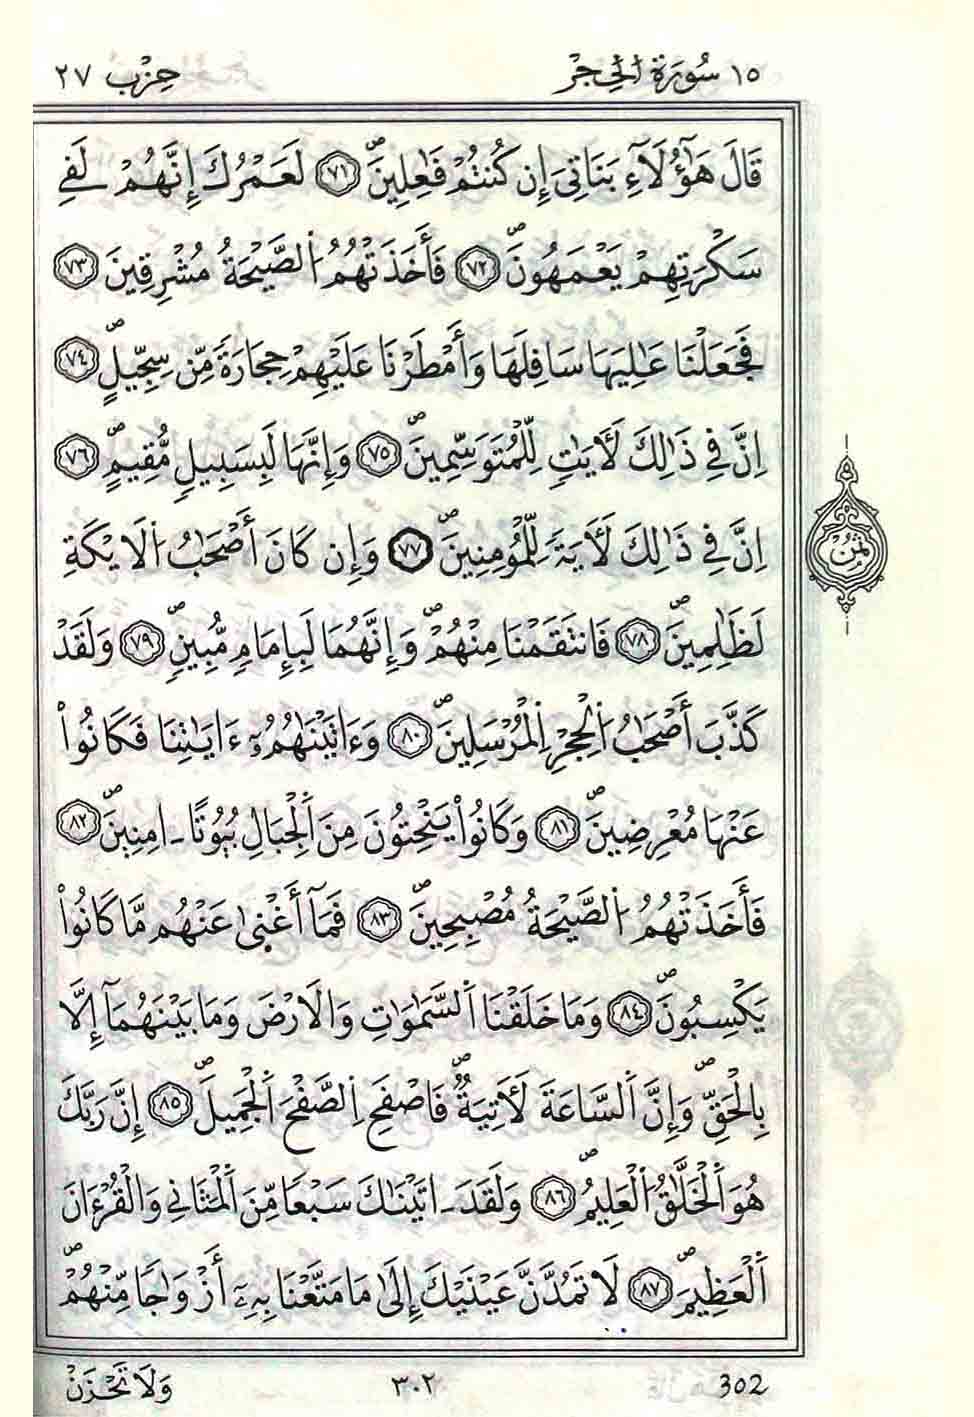 ١٥ سُورَةُ اَ۬لْحِجْرِ حِزْب ٢٧
قَالَ هَٰٓؤُلَآءِ بَنَاتِيَ إِن كُنتُمْ فَٰعِلِينَۖ ٧١ لَعَمْرُكَ إِنَّهُمْ لَفِے
سَكْرَتِهِمْ يَعْمَهُونَۖ ٧٢ فَأَخَذَتْهُمُ اُ۬لصَّيْحَةُ مُشْرِقِينَ ٧٣
فَجَعَلْنَا عَٰلِيَهَا سَافِلَهَا وَأَمْطَرْنَا عَلَيْهِمْ حِجَارَةٗ مِّن سِجِّيلٍۖ ٧٤
اِنَّ فِے ذَٰلِكَ لَأٓيَٰتٖ لِّلْمُتَوَسِّمِينَۖ ٧٥ وَإِنَّهَا لَبِسَبِيلٖ مُّقِيمٍۖ ٧٦
اِنَّ فِے ذَٰلِكَ لَأٓيَةٗ لِّلْمُومِنِينَۖ ٧٧ وَإِن كَانَ أَصْحَٰبُ اُ۬لَايْكَةِ
لَظَٰلِمِينَۖ ٧٨ فَانتَقَمْنَا مِنْهُمْۖ وَإِنَّهُمَا لَبِإِمَامٖ مُّبِينٖۖ ٧٩ وَلَقَدْ
كَذَّبَ أَصْحَٰبُ اُ۬لْحِجْرِ اِ۬لْمُرْسَلِينَۖ ٨٠ وَءَاتَيْنَٰهُمُۥٓ ءَايَٰتِنَا فَكَانُواْ
عَنْهَا مُعْرِضِينَۖ ٨١ وَكَانُواْ يَنْحِتُونَ مِنَ اَ۬لْجِبَالِ بُيُوتاً ـ اٰمِنِينَۖ ٨٢
فَأَخَذَتْهُمُ اُ۬لصَّيْحَةُ مُصْبِحِينَۖ ٨٣ فَمَآ أَغْنَىٰ عَنْهُم مَّا كَانُواْ
يَكْسِبُونَۖ ٨٤ وَمَا خَلَقْنَا اَ۬لسَّمَٰوَٰتِ وَالَارْضَ وَمَا بَيْنَهُمَآ إِلَّا
بِالْحَقِّۖ وَإِنَّ اَ۬لسَّاعَةَ لَأٓتِيَةٞۖ فَاصْفَحِ اِ۬لصَّفْحَ اَ۬لْجَمِيلَۖ ٨٥ إِنَّ رَبَّكَ
هُوَ اَ۬لْخَلَّٰقُ اُ۬لْعَلِيمُۖ ٨٦ وَلَقَدَ ـ اتَيْنَٰكَ سَبْعاٗ مِّنَ اَ۬لْمَثَانِے وَالْقُرْءَانَ
اَ۬لْعَظِيمَۖ ٨٧ لَا تَمُدَّنَّ عَيْنَيْكَ إِلَىٰ مَا مَتَّعْنَا بِهِۦٓ أَزْوَٰجاٗ مِّنْهُمْۖ
ثُمُن
وَلَا تَحْزَنْ ٣٠٢ 302